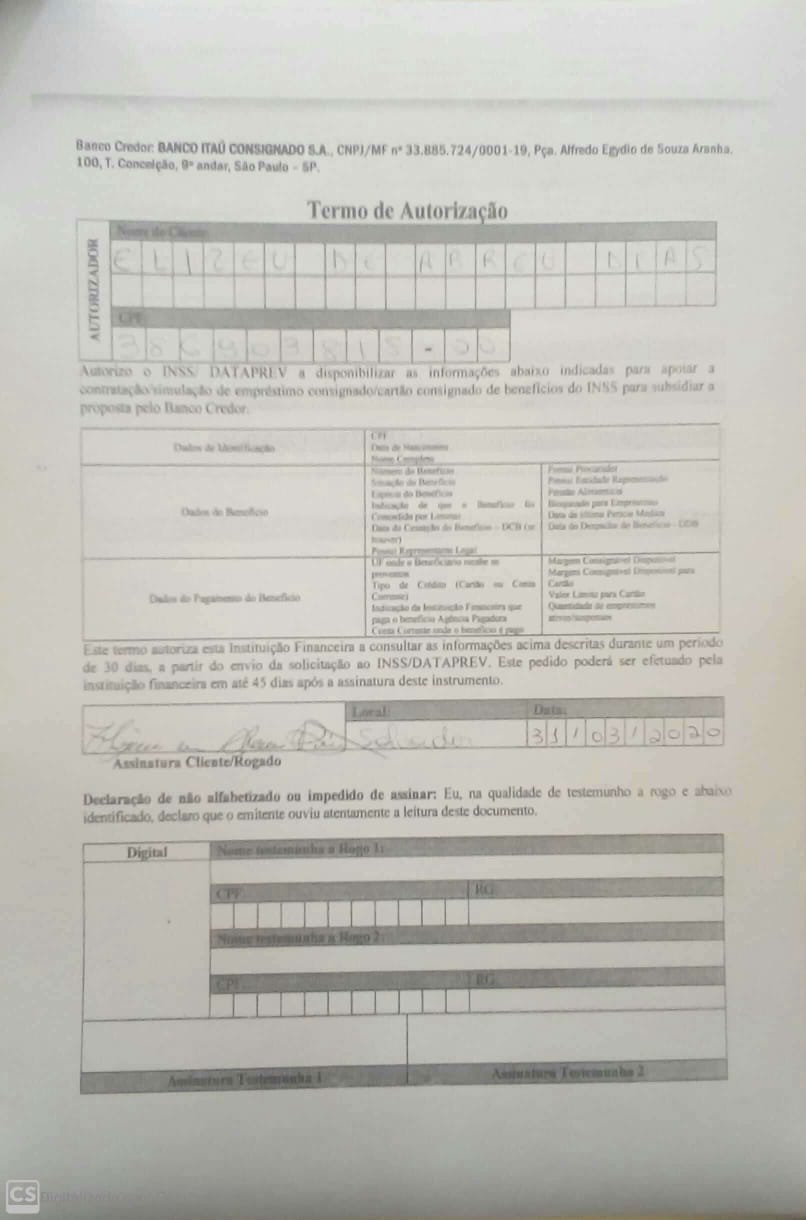 Banco Credor: BANCO ITAÚ CONSIGNADO S.A., CNPJ/MF nº 33.885.724/0001-19, Pça. Alfredo Egydio de Souza Aranha,
100, T. Conceição, 9º andar, São Paulo – SP.
Termo de Autorização
AUTORIZADOR
Nome do Cliente
ELIZEU DE ABREU DIAS
CPF
-
Autorizo o INSS/ DATAPREV a disponibilizar as informações abaixo indicadas para apoiar a
contratação/simulação de empréstimo consignado/cartão consignado de benefícios do INSS para subsidiar a
proposta pelo Banco Credor.
Dados de Identificação
CPF
Data de Nascimento
Nome Completo
Dados do Benefício
Número do Benefício
Situação do Benefício
Espécie do Benefício
Indicação de que o Benefício foi
Concedido por Liminar
Data da Cessação do Benefício – DCB (se
houver)
Possui Representante Legal
Possui Procurador
Possui Entidade Representação
Pensão Alimentícia
Bloqueado para Empréstimo
Data da última Perícia Médica
Data do Despacho do Benefício - DDB
Dados do Pagamento do Benefício
UF onde o Beneficiário recebe os
proventos
Tipo de Crédito (Cartão ou Conta
Corrente)
Indicação da Instituição Financeira que
paga o benefício Agência Pagadora
Conta Corrente onde o benefício é pago
Margem Consignável Disponível
Margem Consignável Disponível para
Cartão
Valor Limite para Cartão
Quantidade de empréstimos
ativos/suspensos
Este termo autoriza esta Instituição Financeira a consultar as informações acima descritas durante um período
de 30 dias, a partir do envio da solicitação ao INSS/DATAPREV. Este pedido poderá ser efetuado pela
instituição financeira em até 45 dias após a assinatura deste instrumento.
Local:
Data:
Salvador
31/03/2020
Assinatura Cliente/Rogado
Declaração de não alfabetizado ou impedido de assinar: Eu, na qualidade de testemunho a rogo e abaixo
identificado, declaro que o emitente ouviu atentamente a leitura deste documento.
Digital
Nome testemunha a Rogo 1:
CPF
RG
Nome testemunha a Rogo 2:
CPF
RG
Assinatura Testemunha 1
Assinatura Testemunha 2
CS